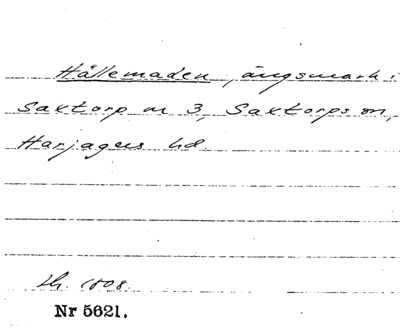 Hällemaden, ängsmark i
Saxtorp nr 3, Saxtorps sn,
Harjagers hd.
Lh. 1808.
Nr 5621.